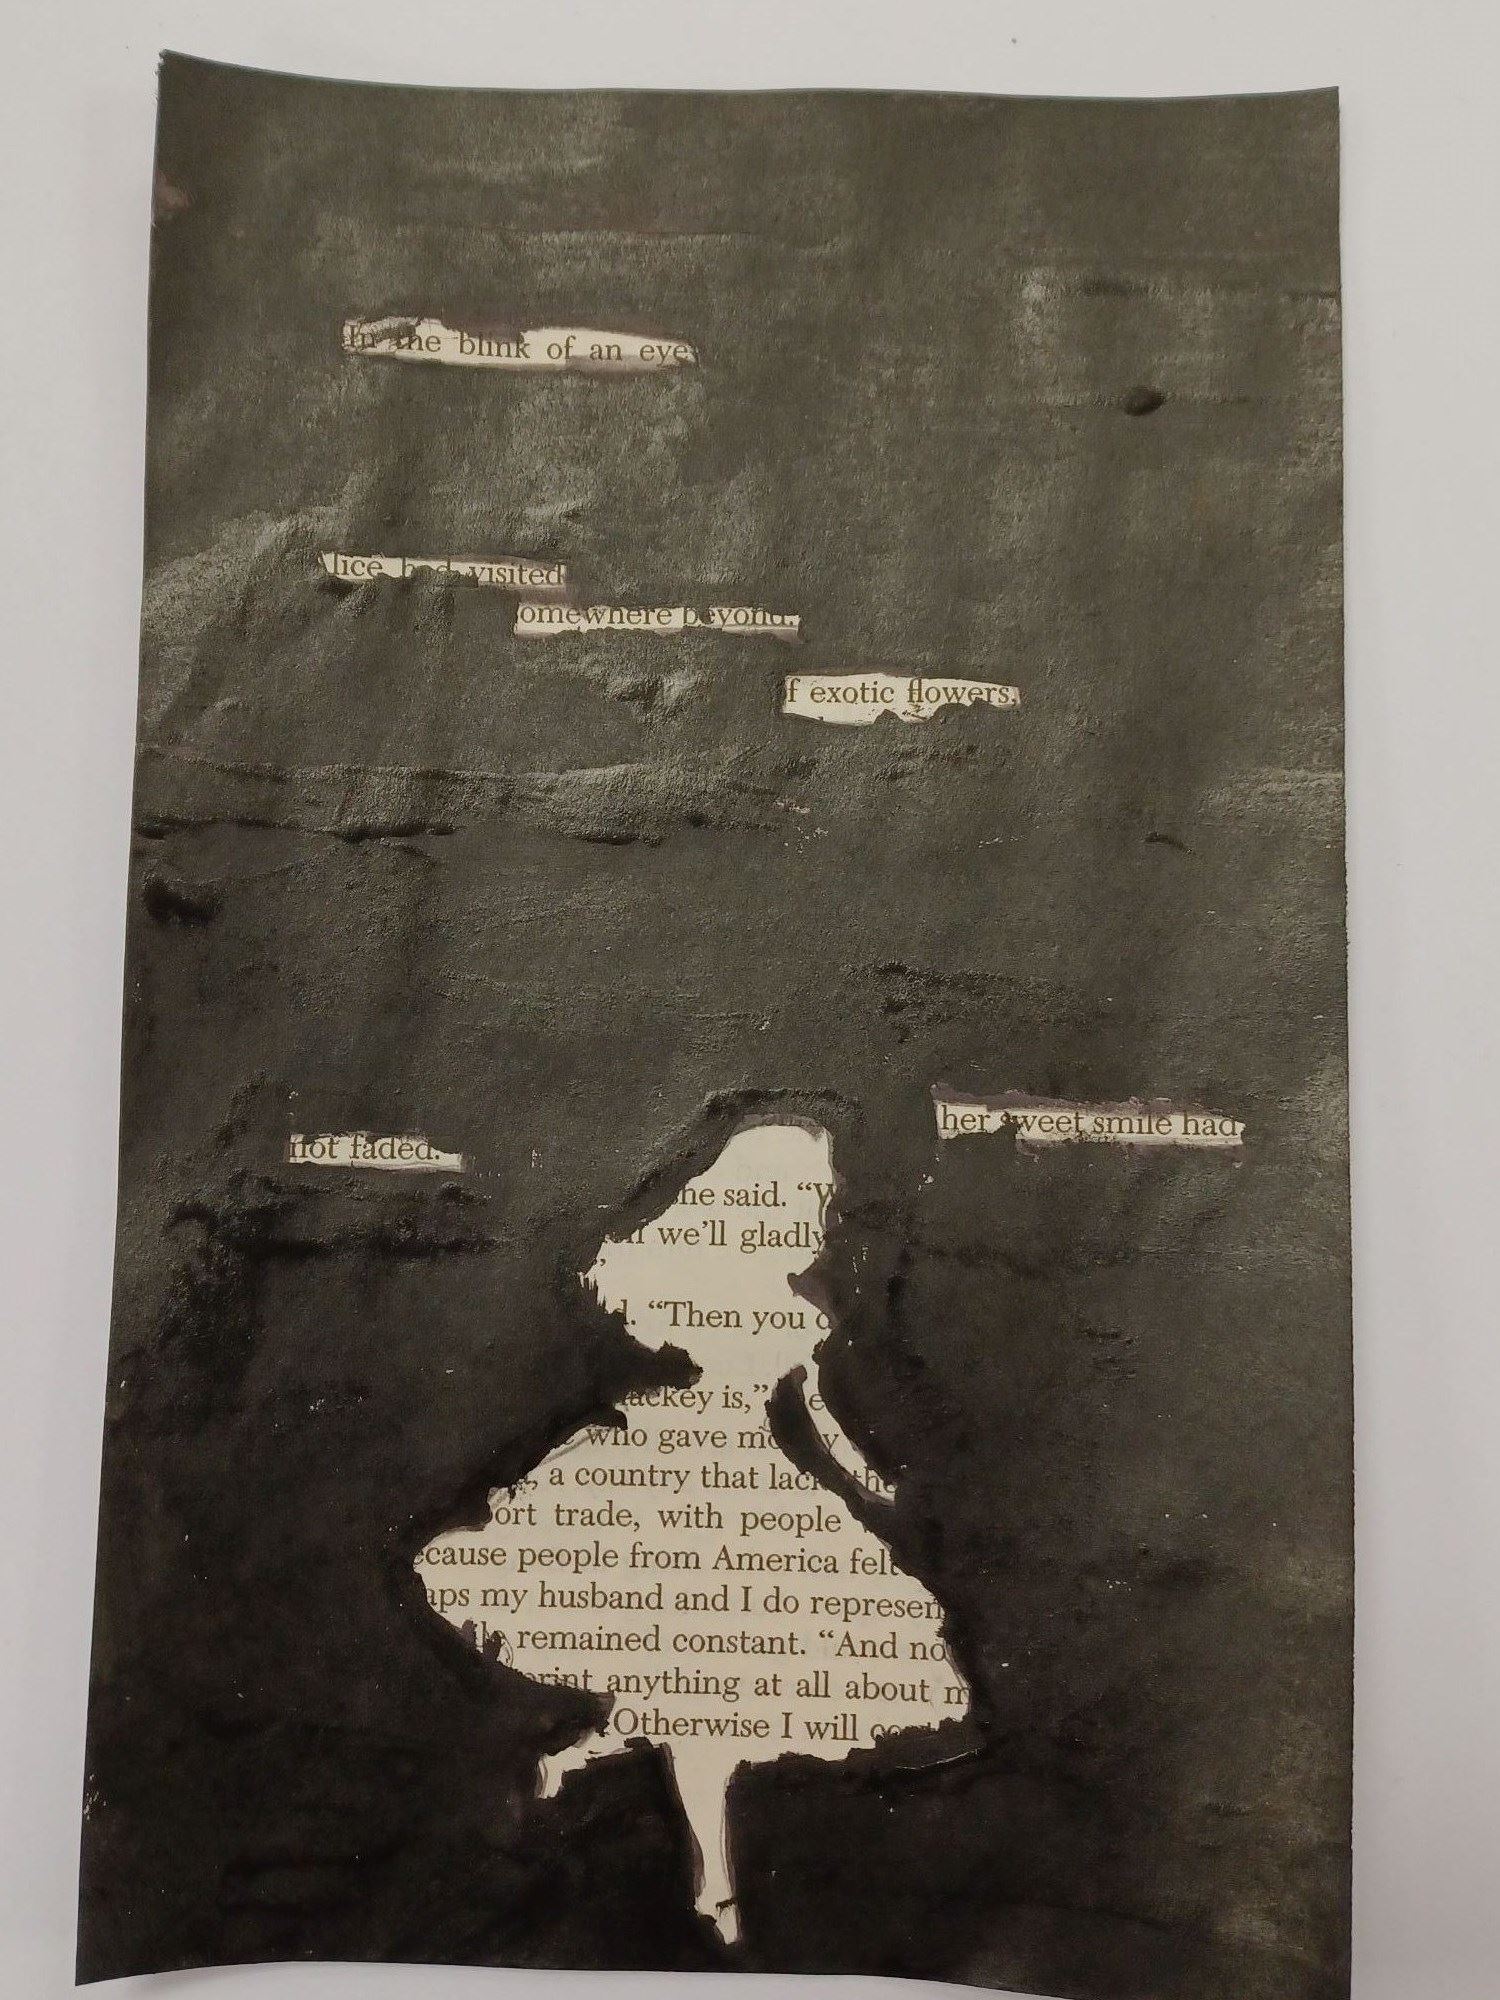 In the blink of an eye
lice had visited
omewhere beyond.
f exotic flowers.
her sweet smile had
not faded.
he said. "W
we'll gladly
"Then you
ackey is,"
who gave
a country that lack the
ort trade, with people
ecause people from America felt
aps my husband and I do represen
remained constant. "And no
print anything at all about m
Otherwise I will